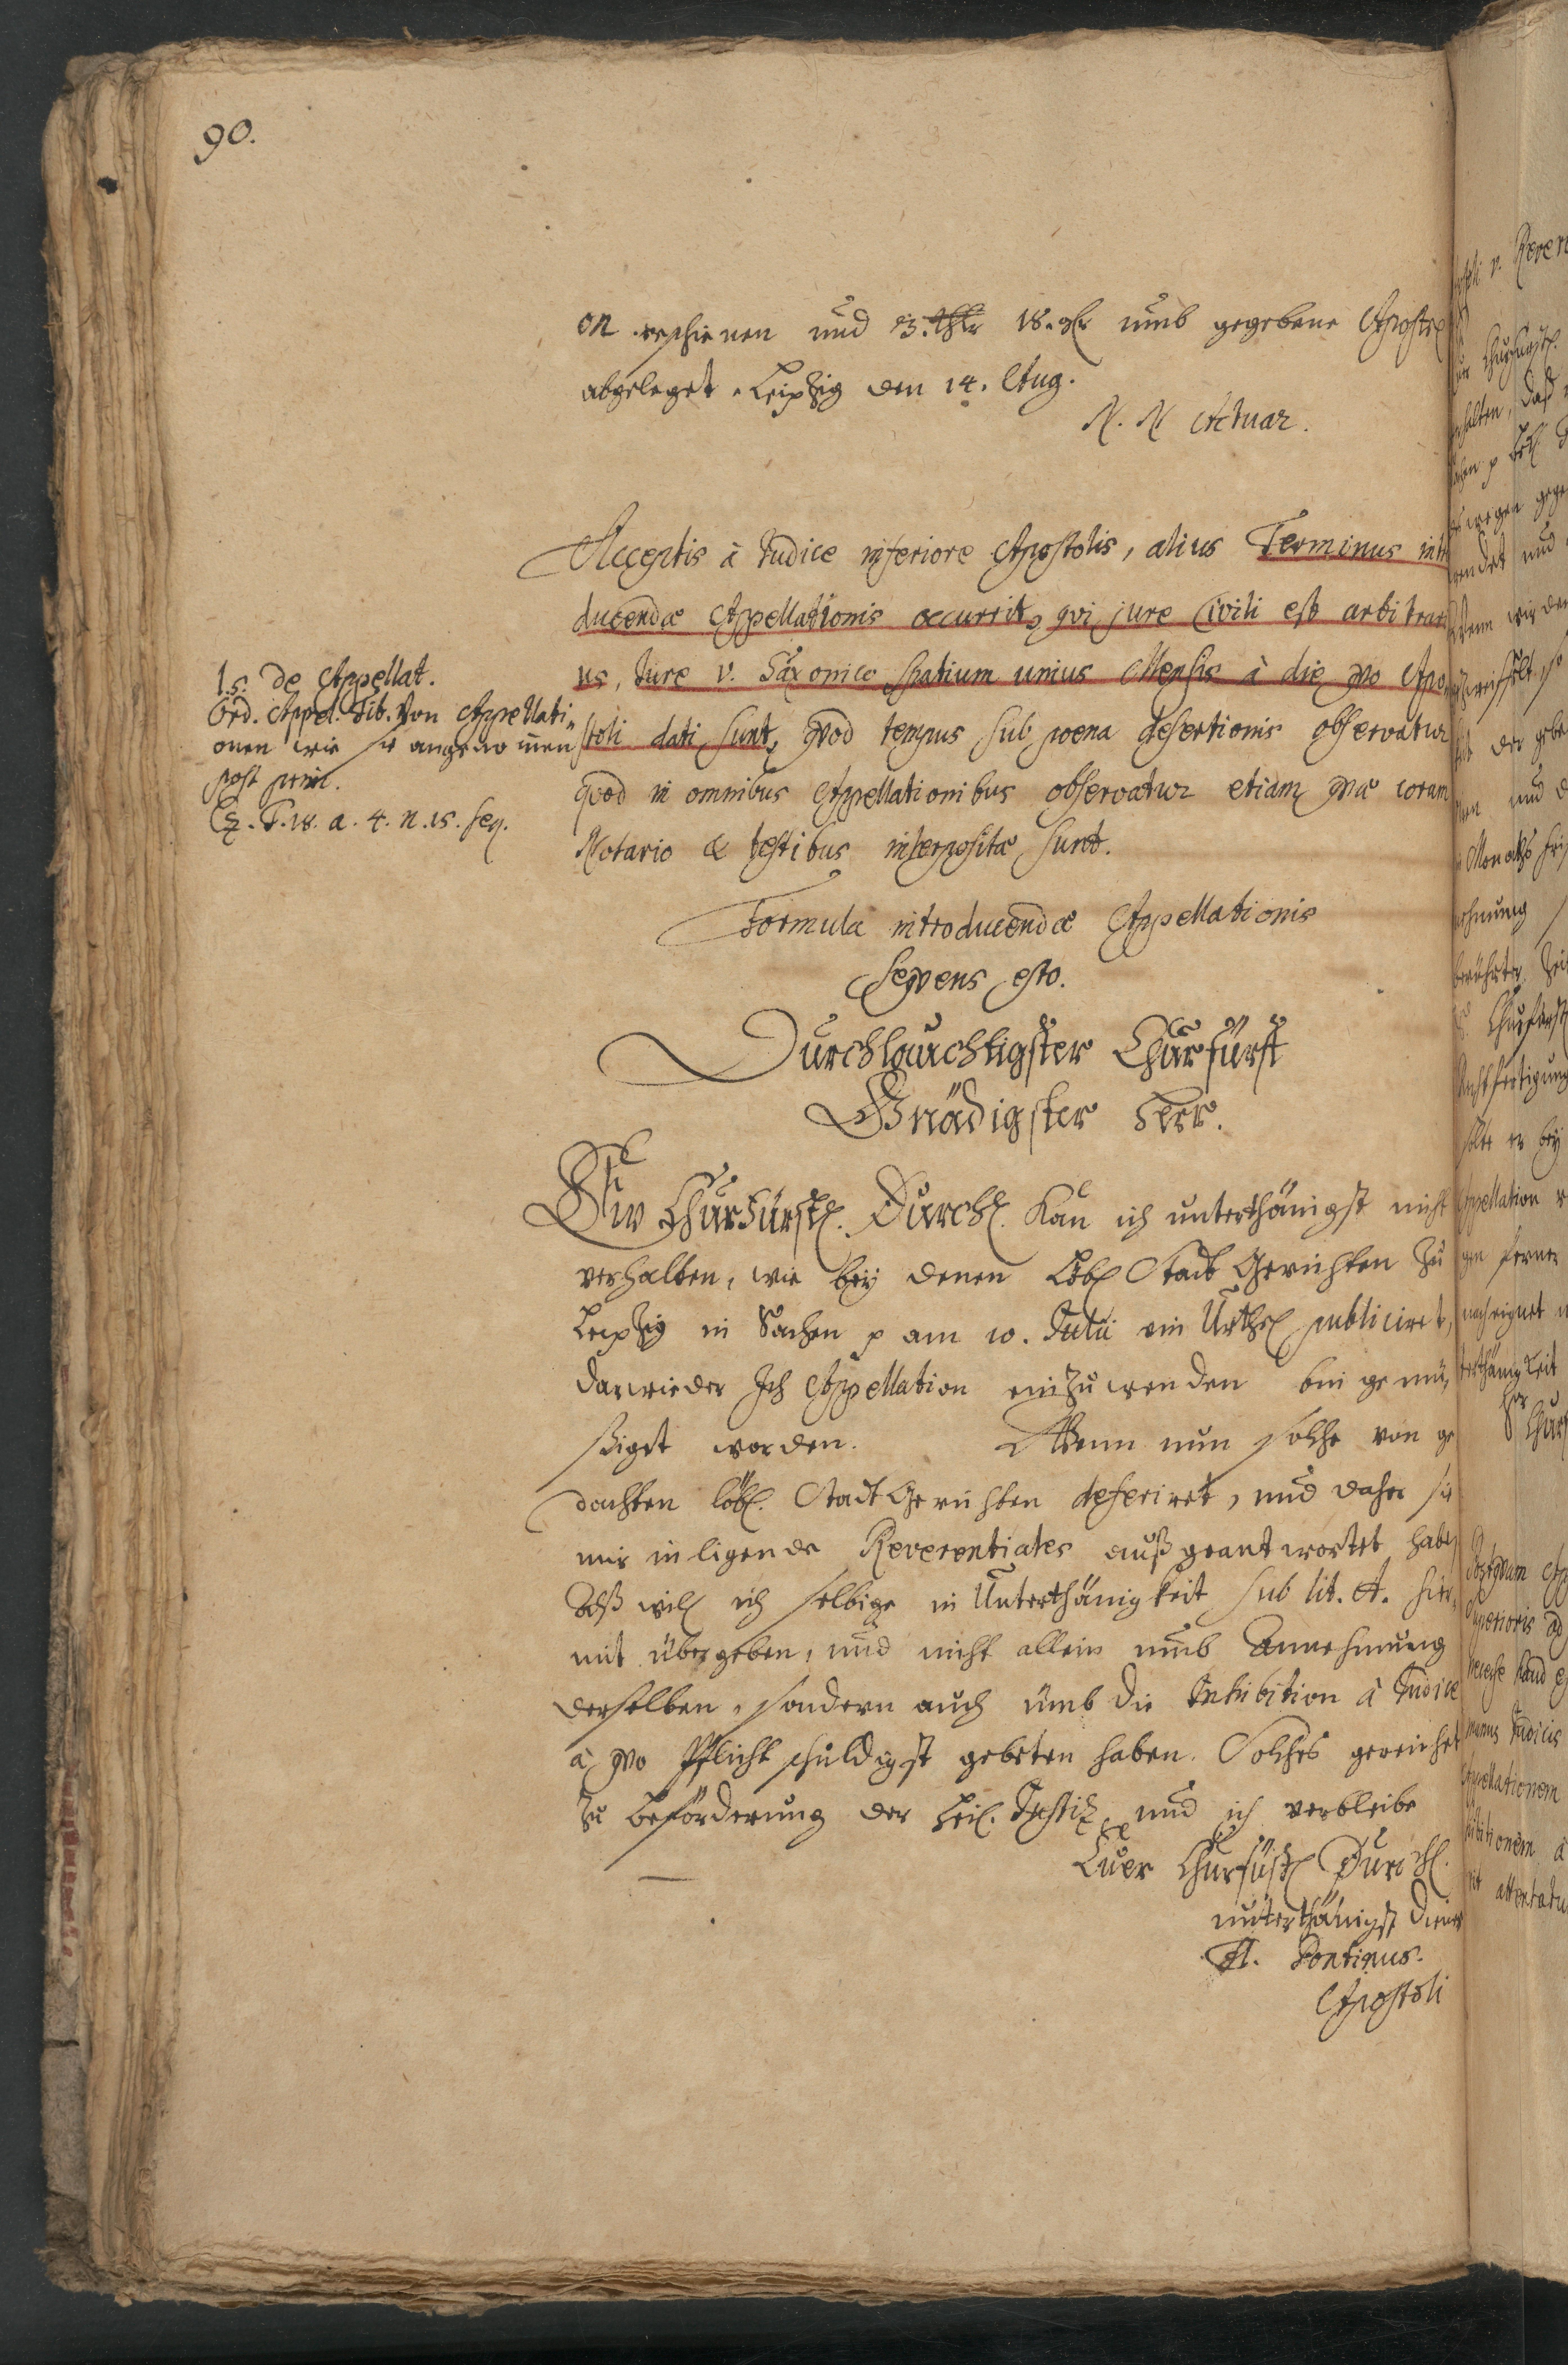 90.
on erschienen und 3. thlr 18. gr umb gegebene Apostel
abgeleget. Leipzig den 14. Aug.
N. N. Actuar.
Acceptis à Judice inferiore Apostolis, alius Terminus intro
ducendæ Appellationis occurrit, qvi jure Civili est arbitrari
us, Jure v. Saxonico spatium unius Mensis à die qvo Apo
stoli dati sunt, qvod tempus sub poena desertionis observatur
qvod in omnibus Appellationibus observatur etiam qvæ coram
Notario & testibus interpositæ sunt.
l. 5. de Appellat.
Ord. Appel. tit. Von Appellati-
onen wie sie angenommen
post princ.
Cz. P. 18. a. 4. n. 15. seq.
Formula introducendæ Appellationis
seqvens esto.
Durchlauchtigster Churfürst
Gnädigster Herr.
Ew Churfürstl. Durchl. kan ich unterthänigst nicht
verhalten, wie bey denen Löbl Stadt Gerichten zu
Leipzig in Sachen p am 10. Julii ein Urthel publiciret,
darwieder Ich Appellation einzuwenden bin gemü-
ßiget worden. Wenn nun solche von ge
dachten löbl. Stadt Gerichten deferiret, und daher sie
mir inligende Reverentiales außgeantwortet haben
Alß will ich selbige in Unterthänigkeit sub lit. A. hier-
mit übergeben, und nicht allein umb Annehmung
derselben, sondern auch umb die Inhibition à Judice
à qvo Pflichtschuldigst gebeten haben. Solches gereichet
zu beförderung der heil. Justiz und ich verbleibe
Euer Churfürstl Durchl.
unterthänigst diener
A. Pontinus.
Apostoli